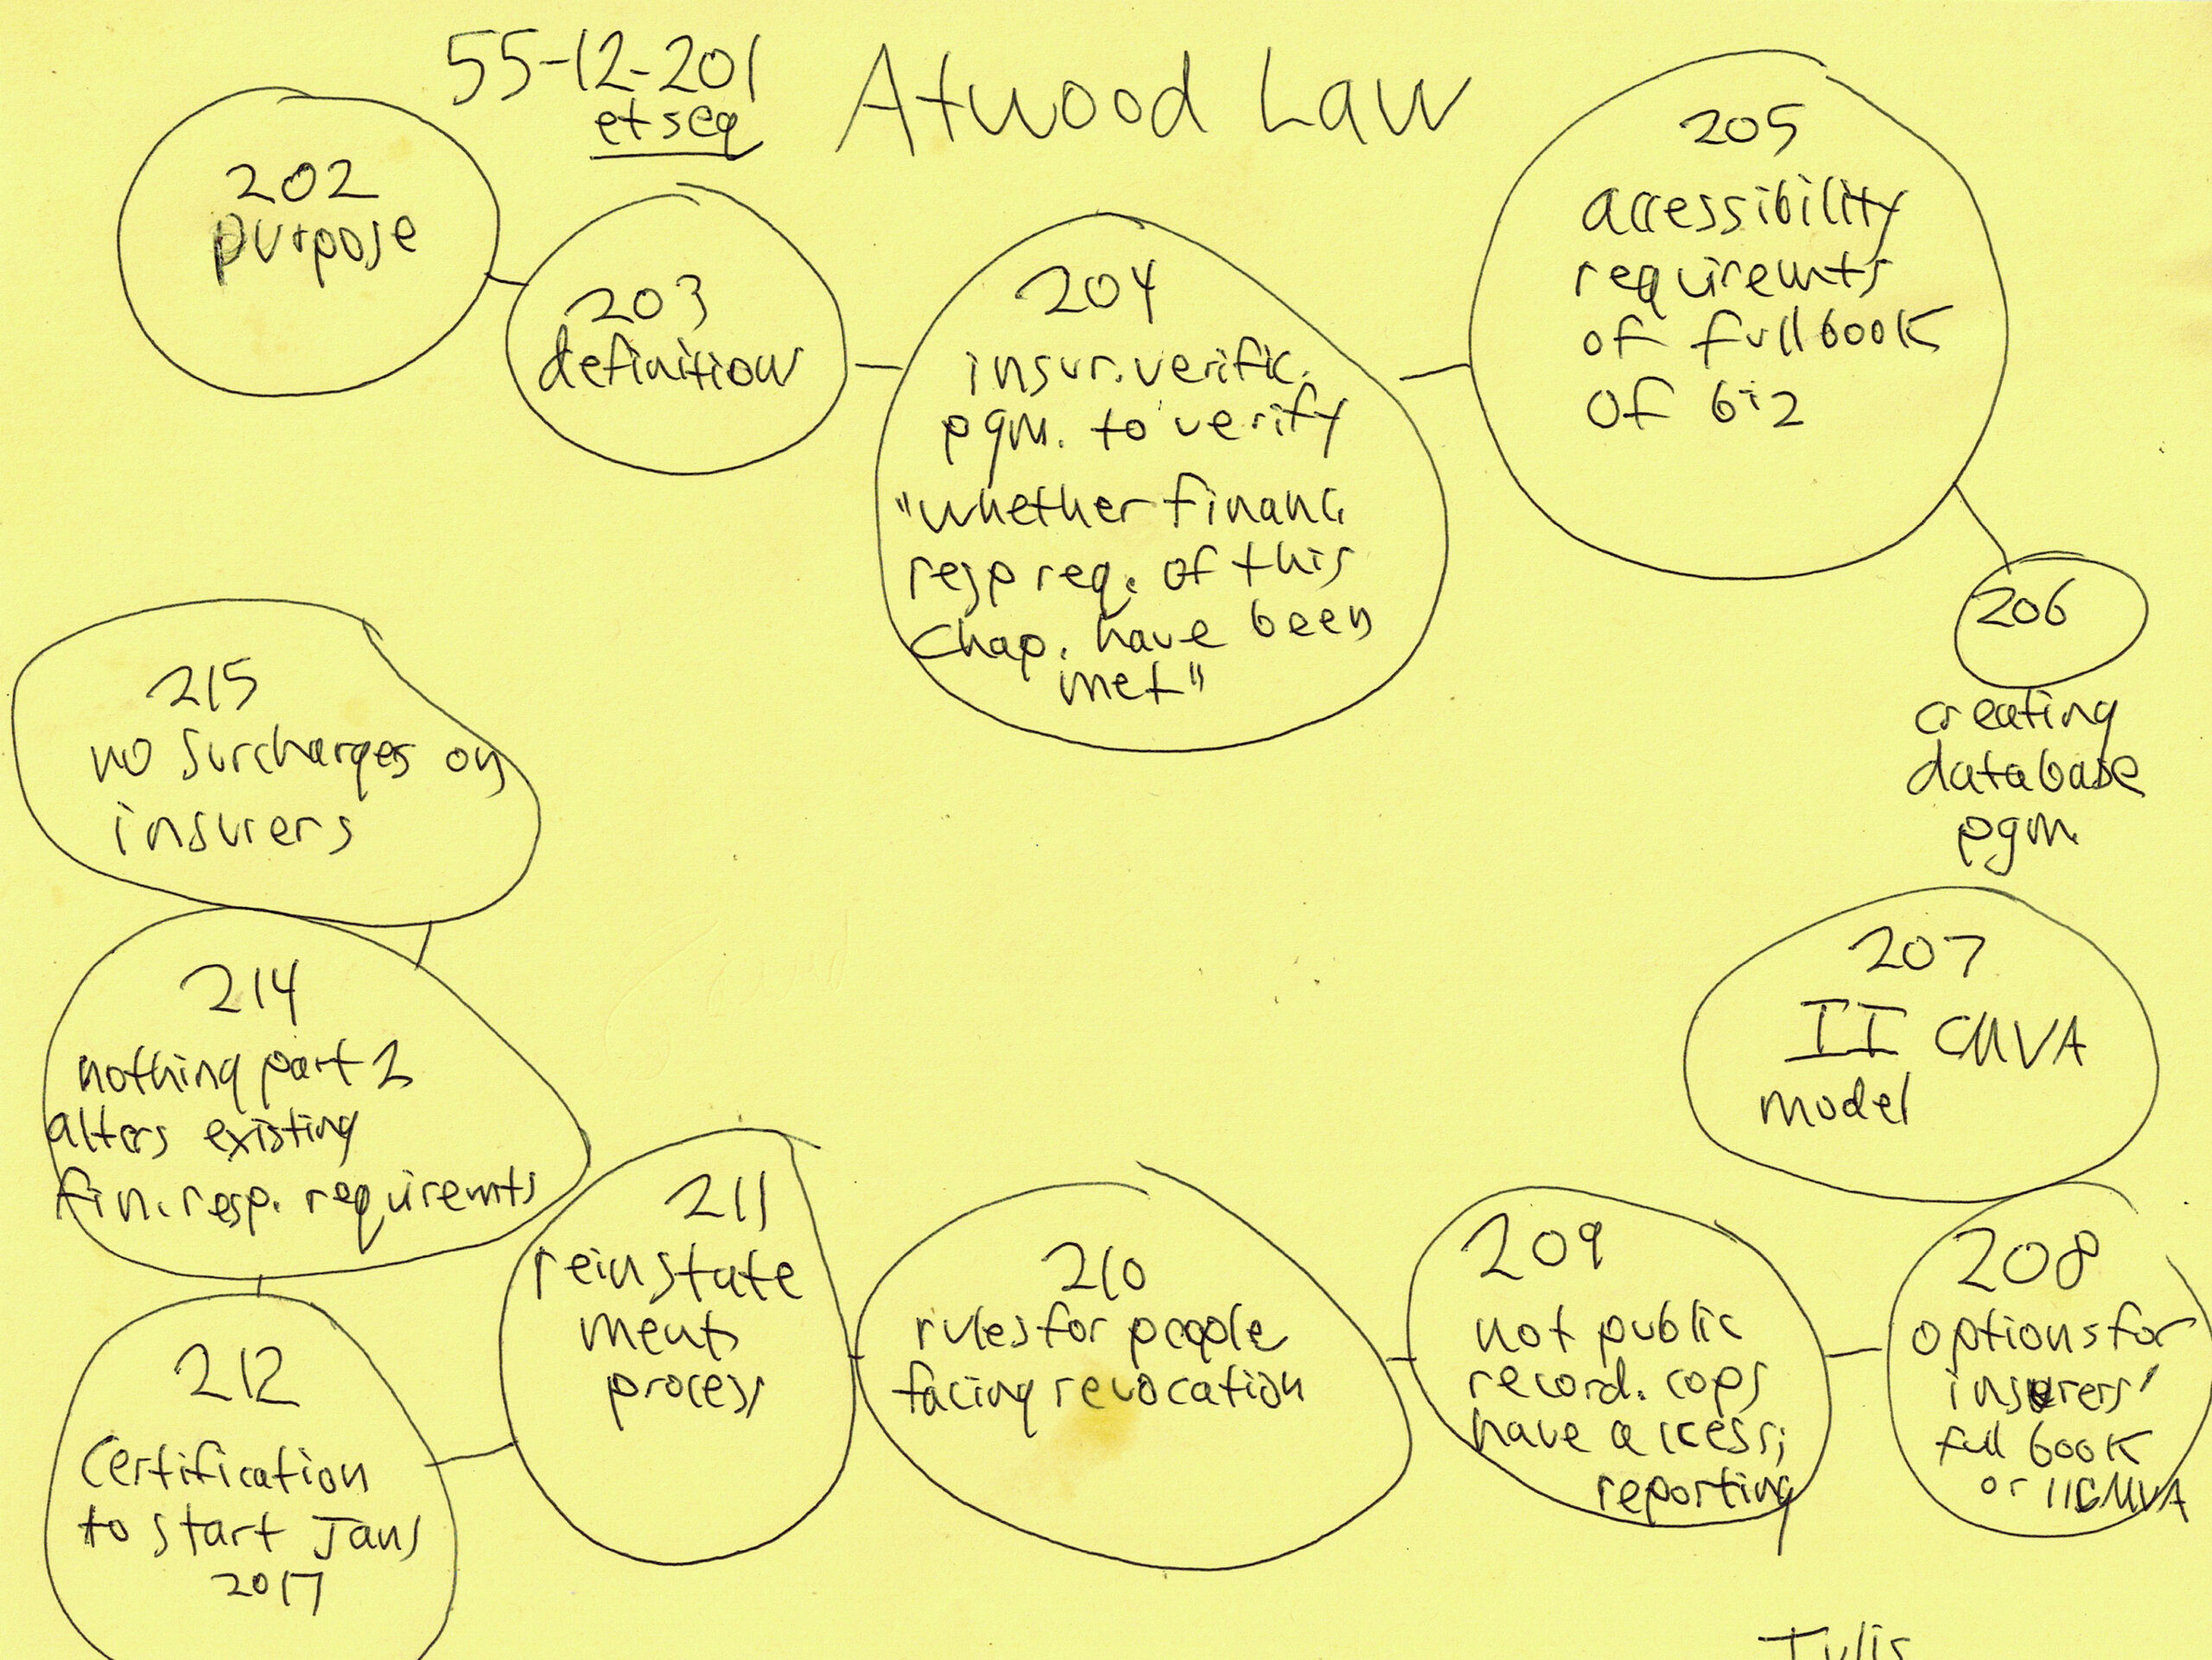 55-12-201
et seq
Atwood Law
202
purpose
203
definitions
204
insur. verific.
pgm. to verify
"whether financ.
resp req. of this
Chap. have been
met"
205
accessibility
requiremts
of full book
of biz
206
creating
database
pgm.
207
II CMVA
model
208
options for
insurers'
full book
or IICMVA
209
not public
record. cops
have access;
reporting
210
rules for people
facing revocation
211
reinstate
ments
process
212
Certification
to start Jan 1
2017
214
nothing part 2
alters existing
fin. resp. requiremts
215
no surcharges on
insurers
Tulis